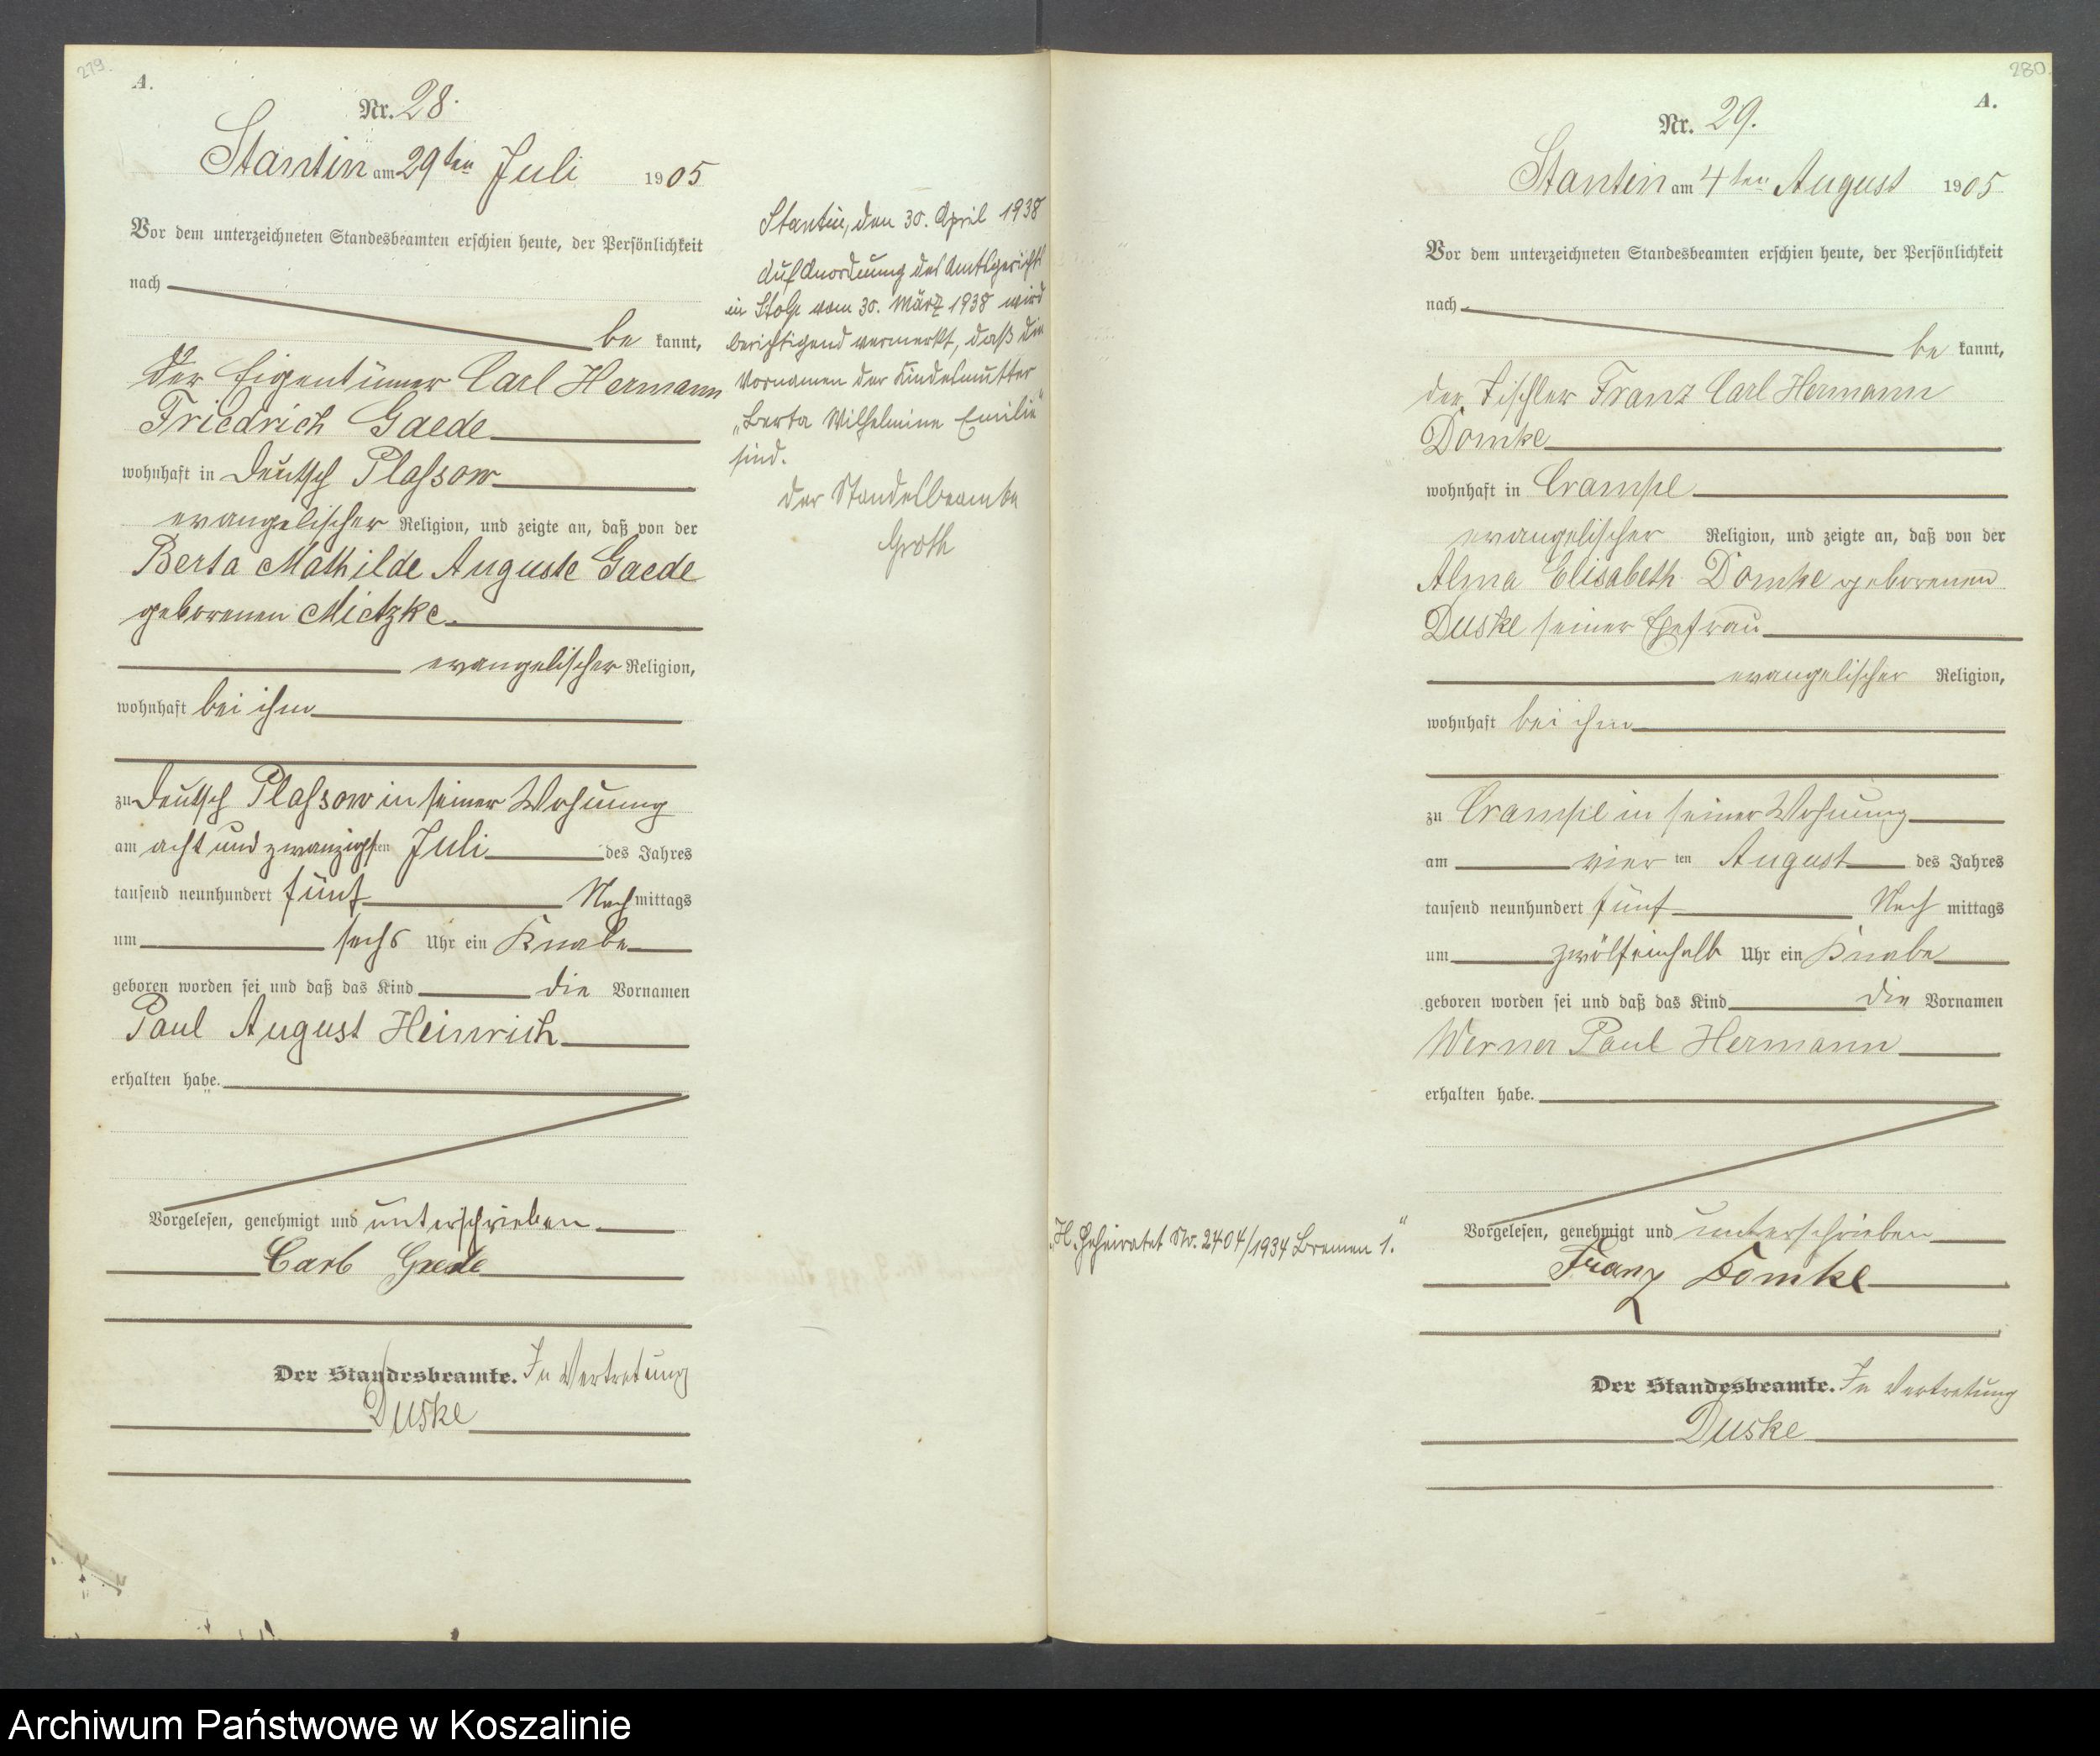 279.
A.
Nr. 28.
Stantin am 29ten Juli 1905
Vor dem unterzeichneten Standesbeamten erschien heute, der Persönlichkeit
nach
be kannt,
der Eigentümer Carl Hermann
Friedrich Gaede
wohnhaft in Deutsch Plassow
evangelischer Religion, und zeigte an, daß von der
Berta Mathilde Auguste Gaede
geborenen Mietzke
evangelischer Religion,
wohnhaft bei ihm
zu Deutsch Plassow in seiner Wohnung
am acht und zwanzigsten Juli des Jahres
tausend neunhundert fünf Nachmittags
um sechs Uhr ein Knabe
geboren worden sei und daß das Kind die Vornamen
Paul August Heinrich
erhalten habe.
Vorgelesen, genehmigt und unterschrieben
Carl Gaede
Der Standesbeamte. In Vertretung
Duske
Stantin, den 30. April 1938
Auf Anordnung des Amtsgerichts
in Stolp vom 30. März 1938 wird
berichtigend vermerkt, daß die
Vornamen der Kindesmutter
„Berta Wilhelmine Emilie“
sind.
Der Standesbeamte
Groth
280.
A.
Nr. 29.
Stantin am 4ten August 1905
Vor dem unterzeichneten Standesbeamten erschien heute, der Persönlichkeit
nach
be kannt,
der Tischler Franz Carl Hermann
Domke
wohnhaft in Crampe
evangelischer Religion, und zeigte an, daß von der
Alma Elisabeth Domke geborenen
Duske seiner Ehefrau
evangelischer Religion,
wohnhaft bei ihm
zu Crampe in seiner Wohnung
am vier ten August des Jahres
tausend neunhundert fünf Nach mittags
um zwölfeinhalb Uhr ein Knabe
geboren worden sei und daß das Kind die Vornamen
Werner Paul Hermann
erhalten habe.
„H. Geheiratet Nr. 2404/1934 Bremen 1.“
Vorgelesen, genehmigt und unterschrieben
Franz Domke
Der Standesbeamte. In Vertretung
Duske
Archiwum Państwowe w Koszalinie